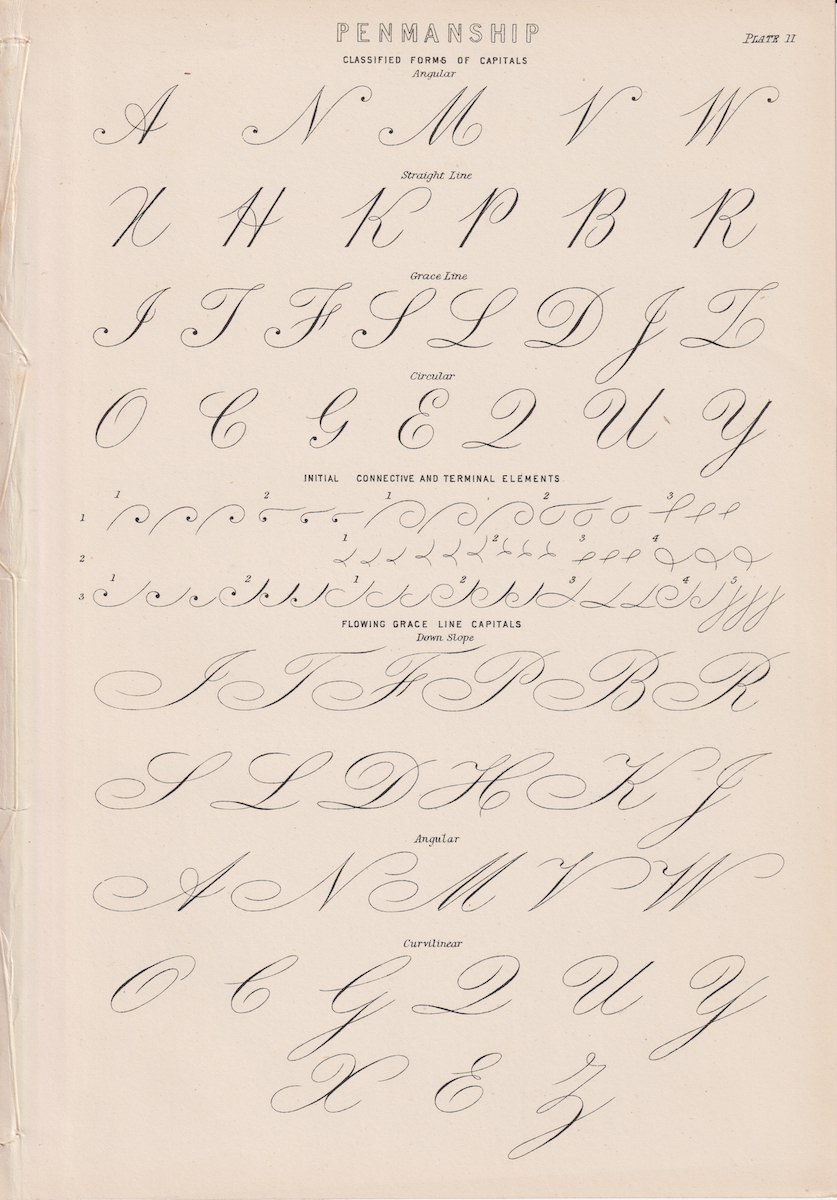 PENMANSHIP
PLATE 11
CLASSIFIED FORMS OF CAPITALS
Angular
A N M V W
Straight Line
X H K P B R
Grace Line
I T F S L D J Z
Circular
O C G E Q U Y
INITIAL CONNECTIVE AND TERMINAL ELEMENTS
1 2 1 2 3
1
1 2 3 4
2
1 2 1 2 3 4 5
3
FLOWING GRACE LINE CAPITALS
Down Slope
I T F P B R
S L D H K J
Angular
A N M V W
Curvilinear
O C G Q U Y
X E Z